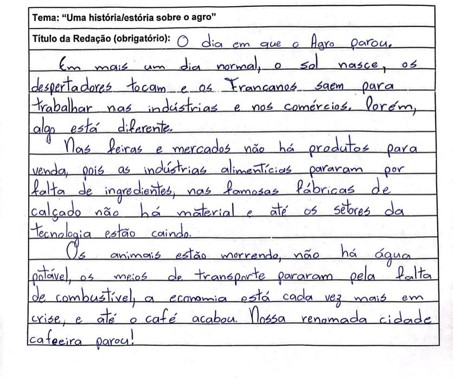 Tema: "Uma história/estória sobre o agro"
Título da Redação (obrigatório): O dia em que o Agro parou.
Em mais um dia normal, o sol nasce, os
despertadores tocam e os Francanos saem para
trabalhar nas indústrias e nos comércios. Porém,
algo está diferente.
Nas feiras e mercados não há produtos para
venda, pois as indústrias alimentícias pararam por
falta de ingredientes, nas famosas fábricas de
calçado não há material e até os setores da
tecnologia estão caindo.
Os animais estão morrendo, não há água
potável, os meios de transporte pararam pela falta
de combustível, a economia está cada vez mais em
crise, e até o café acabou. Nossa renomada cidade
cafeeira parou!